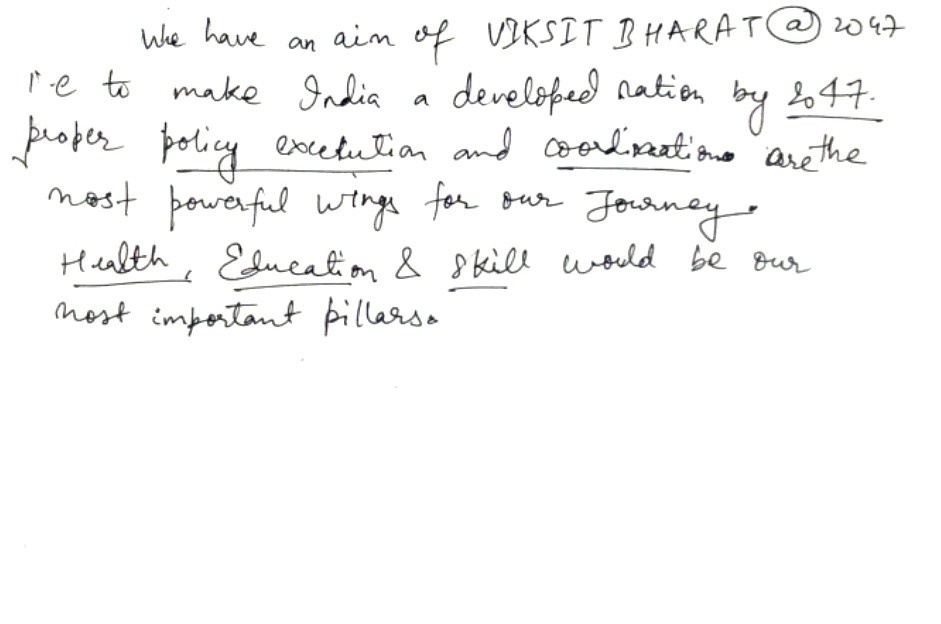 We have an aim of VIKSIT BHARAT @ 2047
i.e to make India a developed nation by 2047.
proper policy excetution and coordination are the
most powerful wings for our Journey.
Health, Education & Skill would be our
most important pillars.